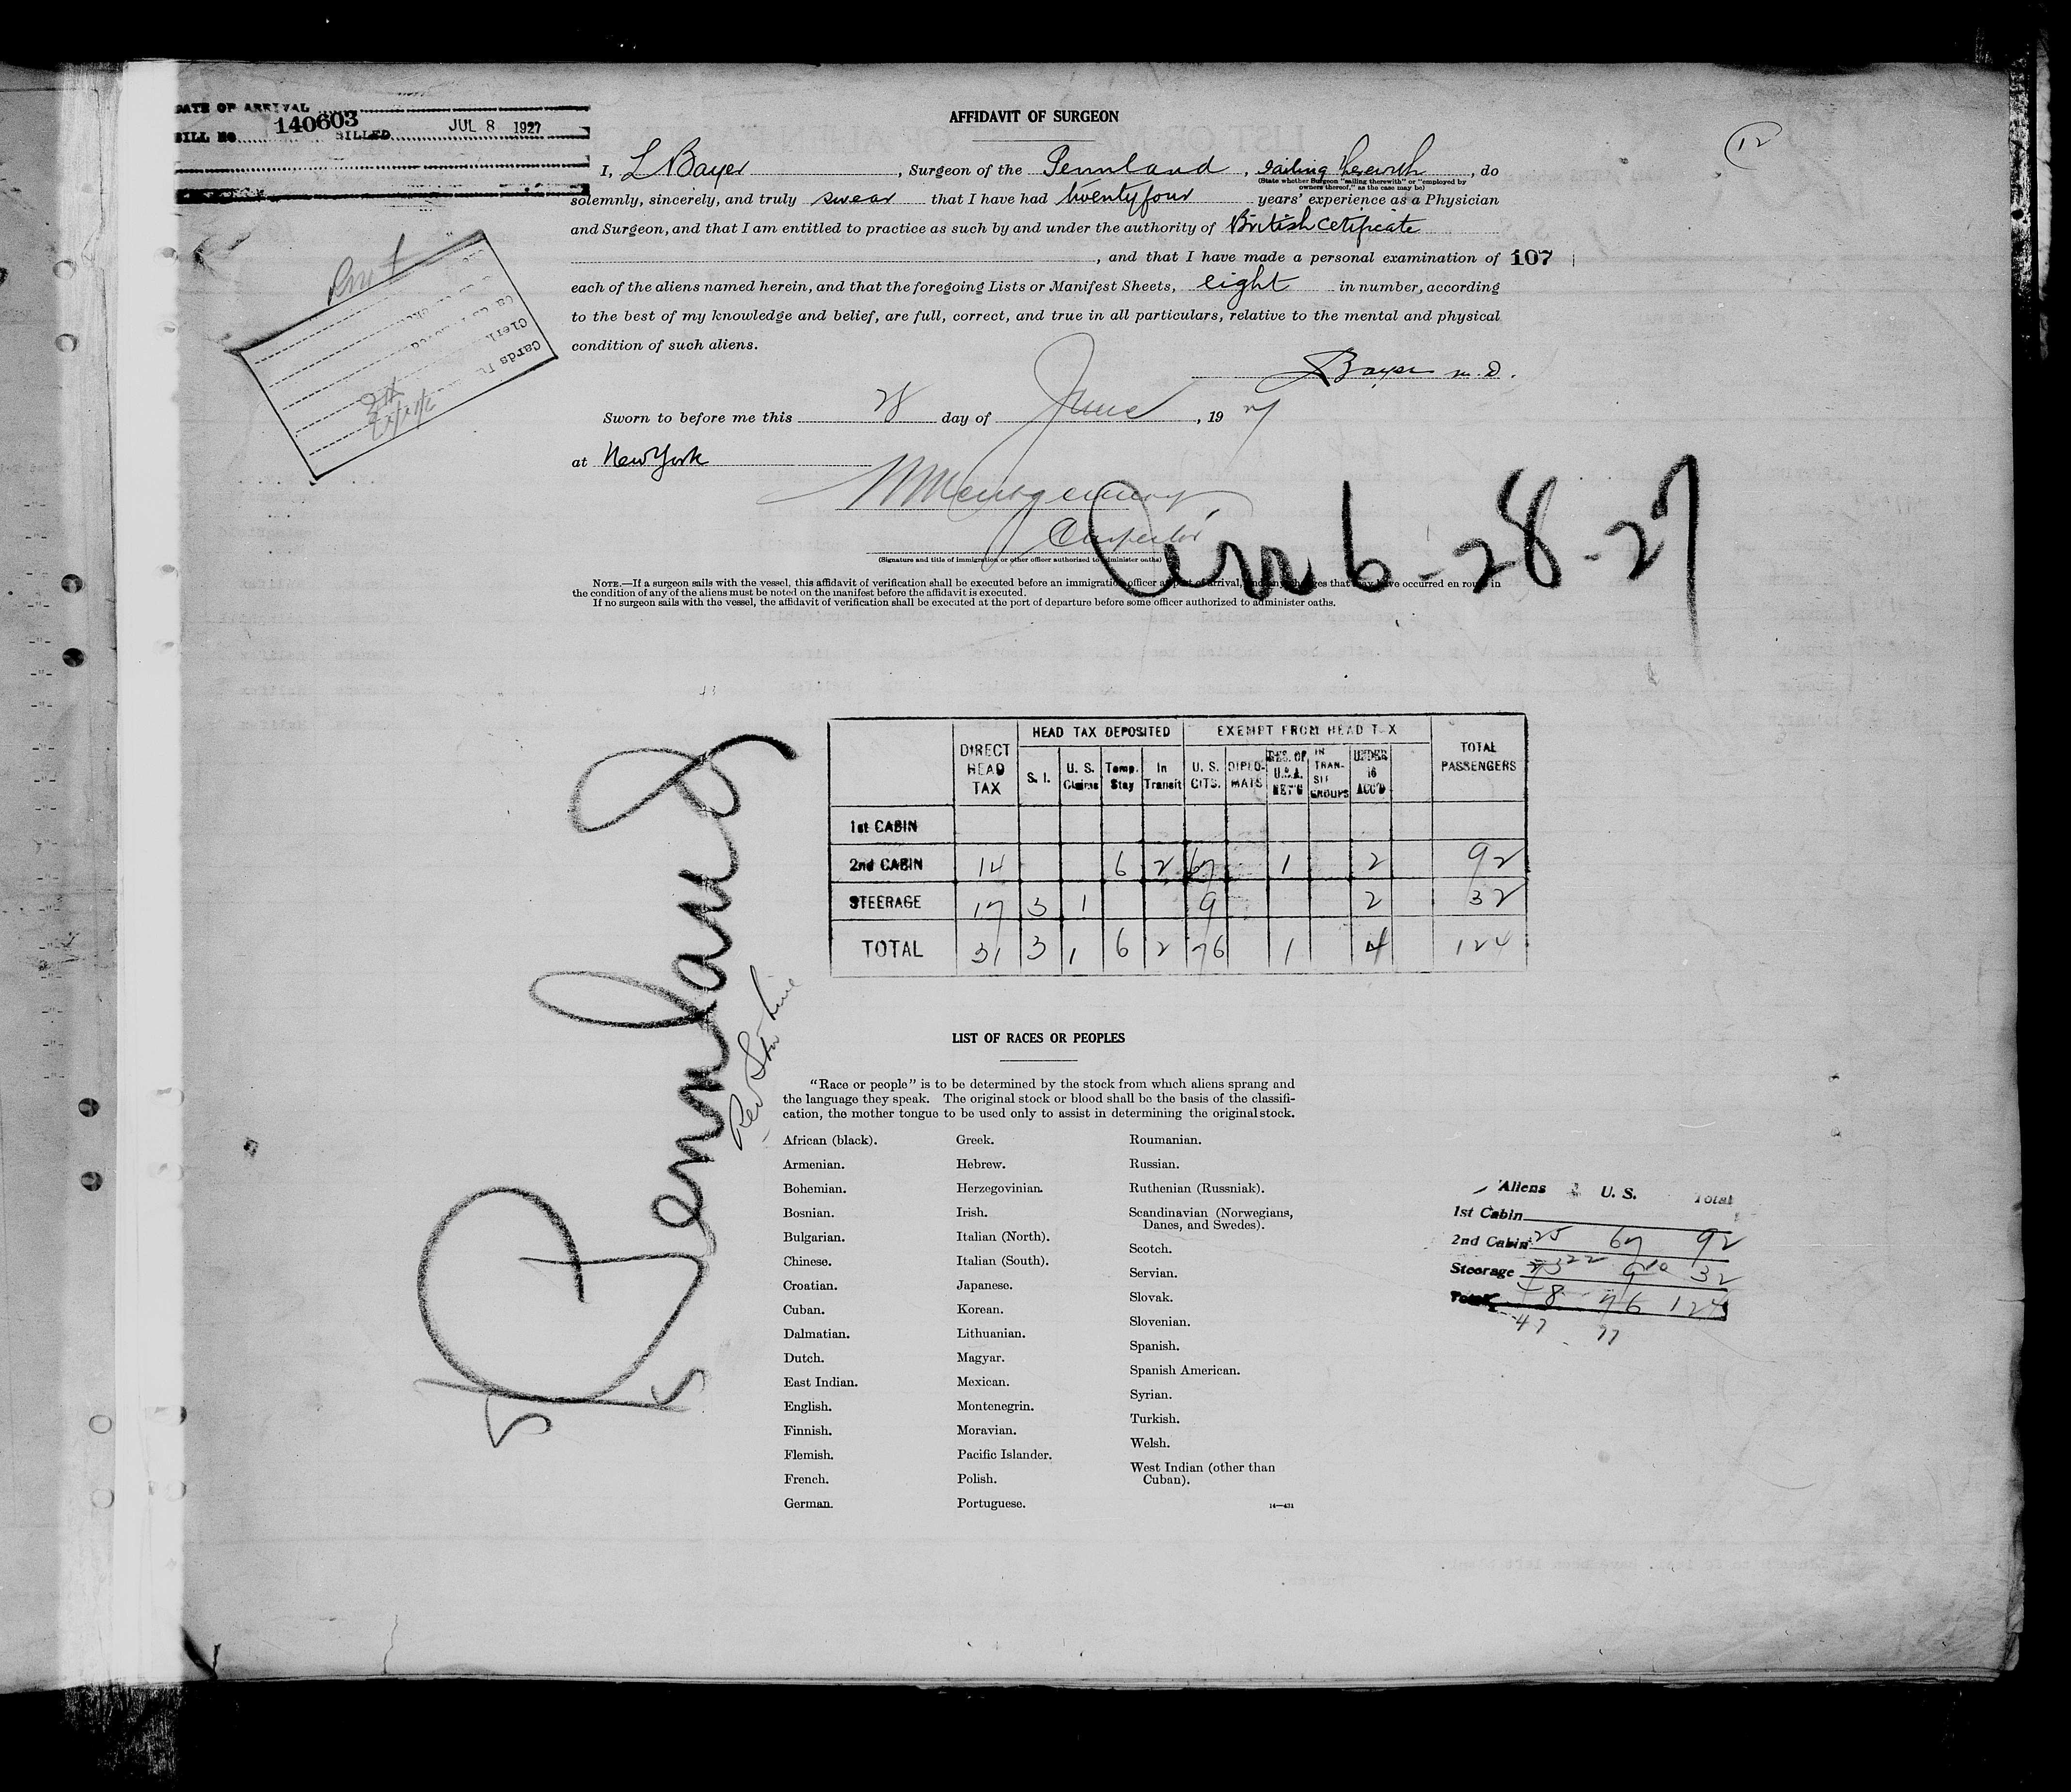 DATE OF ARRIVAL
BILL NO 140603 BILLED JUL 8 1927
12
AFFIDAVIT OF SURGEON
I, L Bayer, Surgeon of the Pennland, sailing therewith, do
(State whether Surgeon "sailing therewith" or "employed by
owners thereof," as the case may be)
solemnly, sincerely, and truly swear that I have had twenty four years' experience as a Physician
and Surgeon, and that I am entitled to practice as such by and under the authority of British Cetificate
, and that I have made a personal examination of 107
each of the aliens named herein, and that the foregoing Lists or Manifest Sheets, eight in number, according
to the best of my knowledge and belief, are full, correct, and true in all particulars, relative to the mental and physical
condition of such aliens.
L Bayer M.D.
Sworn to before me this 28 day of June, 1927
at New York
Montgomery
Inspector
(Signature and title of immigration or other officer authorized to administer oaths)
Cards
Clerk
Arr 6-28-27
NOTE.—If a surgeon sails with the vessel, this affidavit of verification shall be executed before an immigration officer at port of arrival, and any changes that may have occurred en route in
the condition of any of the aliens must be noted on the manifest before the affidavit is executed.
If no surgeon sails with the vessel, the affidavit of verification shall be executed at the port of departure before some officer authorized to administer oaths.
SS Pennland
Red Star Line
DIRECT HEAD TAX HEAD TAX DEPOSITED EXEMPT FROM HEAD TAX TOTAL PASSENGERS
S. I. U. S. Claims Temp. Stay In Transit U. S. CITS. DIPLO-MATS RES. OF U.S.A. RET'G IN TRAN-SIT GROUPS UNDER 16 ACC'D
1st CABIN
2nd CABIN 14 6 2 67 1 2 92
STEERAGE 17 3 1 9 2 32
TOTAL 31 3 1 6 2 76 1 4 124
LIST OF RACES OR PEOPLES
"Race or people" is to be determined by the stock from which aliens sprang and
the language they speak. The original stock or blood shall be the basis of the classifi-
cation, the mother tongue to be used only to assist in determining the original stock.
African (black).
Armenian.
Bohemian.
Bosnian.
Bulgarian.
Chinese.
Croatian.
Cuban.
Dalmatian.
Dutch.
East Indian.
English.
Finnish.
Flemish.
French.
German.
Greek.
Hebrew.
Herzegovinian.
Irish.
Italian (North).
Italian (South).
Japanese.
Korean.
Lithuanian.
Magyar.
Mexican.
Montenegrin.
Moravian.
Pacific Islander.
Polish.
Portuguese.
Roumanian.
Russian.
Ruthenian (Russniak).
Scandinavian (Norwegians,
Danes, and Swedes).
Scotch.
Servian.
Slovak.
Slovenian.
Spanish.
Spanish American.
Syrian.
Turkish.
Welsh.
West Indian (other than
Cuban).
14—431
Aliens U. S. Total
1st Cabin
2nd Cabin 25 67 92
Steerage 23 22 9 10 32
Total 48 76 124
47 77